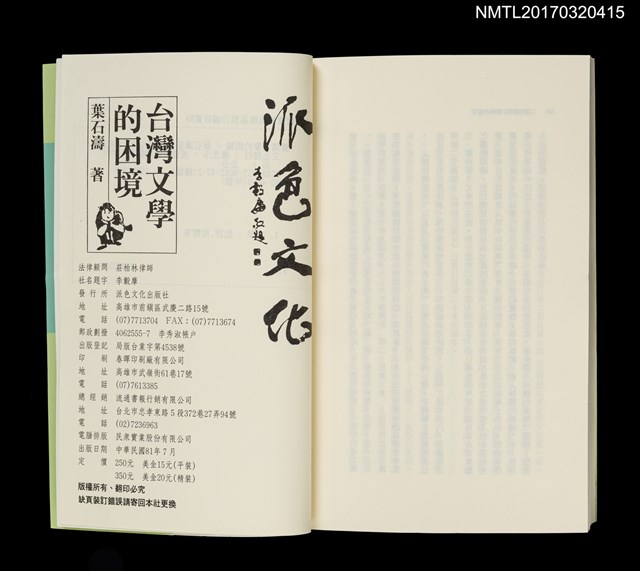 NMTL20170320415
派色文化
李毅摩敬題
台灣文學
的困境
葉石濤 著
法律顧問 莊柏林律師
社名題字 李毅摩
發行所 派色文化出版社
地址 高雄市前鎮區武慶二路15號
電話 (07)7713704 FAX：(07)7713674
郵政劃撥 4062555-7 李秀淑帳戶
出版登記 局版台業字第4538號
印刷 春暉印刷廠有限公司
地址 高雄市武嶺街61巷17號
電話 (07)7613385
總經銷 流通書報行銷有限公司
地址 台北市忠孝東路5段372巷27弄94號
電話 (02)7236963
電腦排版 民衆實業股份有限公司
出版日期 中華民國81年7月
定價 250元 美金15元(平裝)
350元 美金20元(精裝)
版權所有、翻印必究
缺頁裝訂錯誤請寄回本社更換